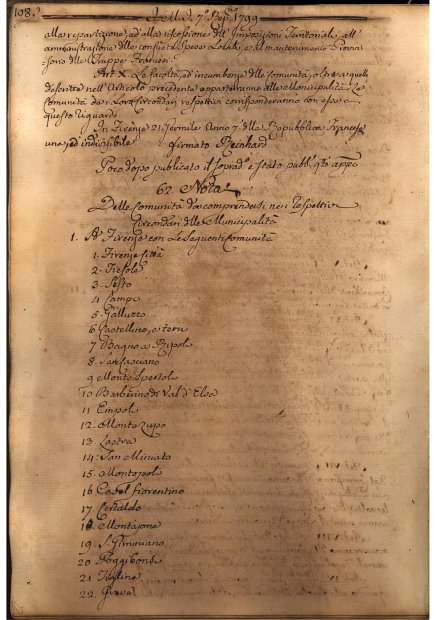 108.
A. M. D. 7.e Rep. 1799
alla repartizione, ed alla riscossione dll' Imposizioni Territoriali, all'
amministrazione delle consuete Spese Locali, e al mantenimento Provvi-
sorio delle Truppe Francesi.
Art. X. Le facoltà, ed incumbenze delle Comunità, o sieno quelle
descritte nell' Articolo precedente apparterranno alle Municipalità. Le
Comunità dei Loro Circondari respettivi corrisponderanno con esse a
questo riguardo.
In Firenze 21. Fiorile Anno 7.o della Repubblica Francese
una, ed indivisibile firmato Reinhard
Poco dopo publicato il soprad.o e stato pubb.o q.to app.o
62. Nota
Delle Comunità da comprendersi nei respettivi
Circondari dlle Municipalità
1. A Firenze con Le Seguenti Comunità
1. Firenze Città
2. Fiesole
3. Sesto
4 Campi
5. Galluzzo
6 Castellina, e terri
7 Bagno a Ripoli
8. San Casciano
9 Monte Spertoli
10 Barberino di Val d' Elsa
11 Empoli
12. Monte Lupo
13. Lastra
14. San Miniato
15. Montopoli
16 Castel fiorentino
17. Certaldo
18. Montajone
19. S. Gimignano
20 Poggibonsi
21 Figline
22. Greve